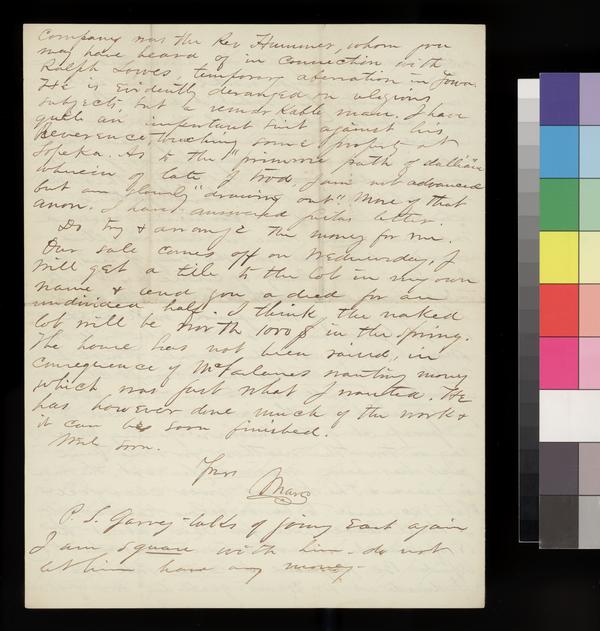 Company was the Rev Hummer, whom you
may have heard of in connection with
Ralph Lowes temporary aberration in Iowa.
He is evidently deranged on religious
subjects, but a remarkable man. I have
quite an important suit against his
Reverence, touching some property at
Topeka. As to the "primrose path of dalliance
wherein of late I trod I am not advanced
but am slowly "drawing out". More of that
anon. I have answered letter.
Do try & arrange the money for me.
Our sale comes off on Wednesday, I
will get a title to the lot in my own
name & send you a deed for an
undivided half. I think the naked
lot will be worth 1000$ in the spring.
The house has not been raised, in
consequence of McFarlanes wanting money
which was just what I wanted. He
has however done much of the work &
it can be soon finished.
Write soon.
Yours
Marc
P. S. Garvey talks of going East again
I am square with him - do not
let him have any money -